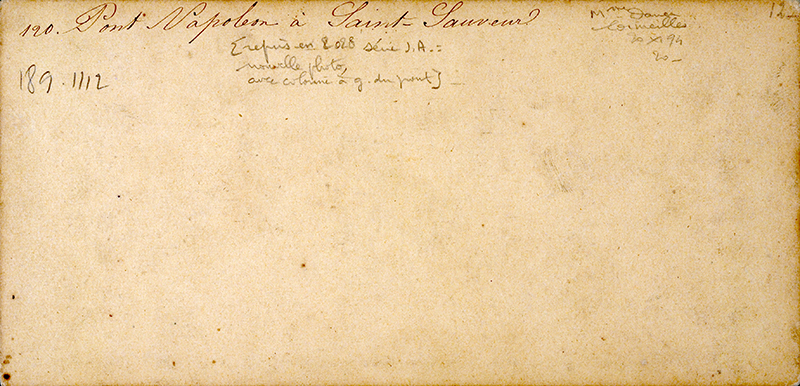 120. Pont Napoléon à Saint-Sauveur
[repris en 2028 série J.A. =
nouvelle photo,
avec colonne à g. du pont] -
189.1112
Mme
Cormeilles
XI 94
20 -
12 -